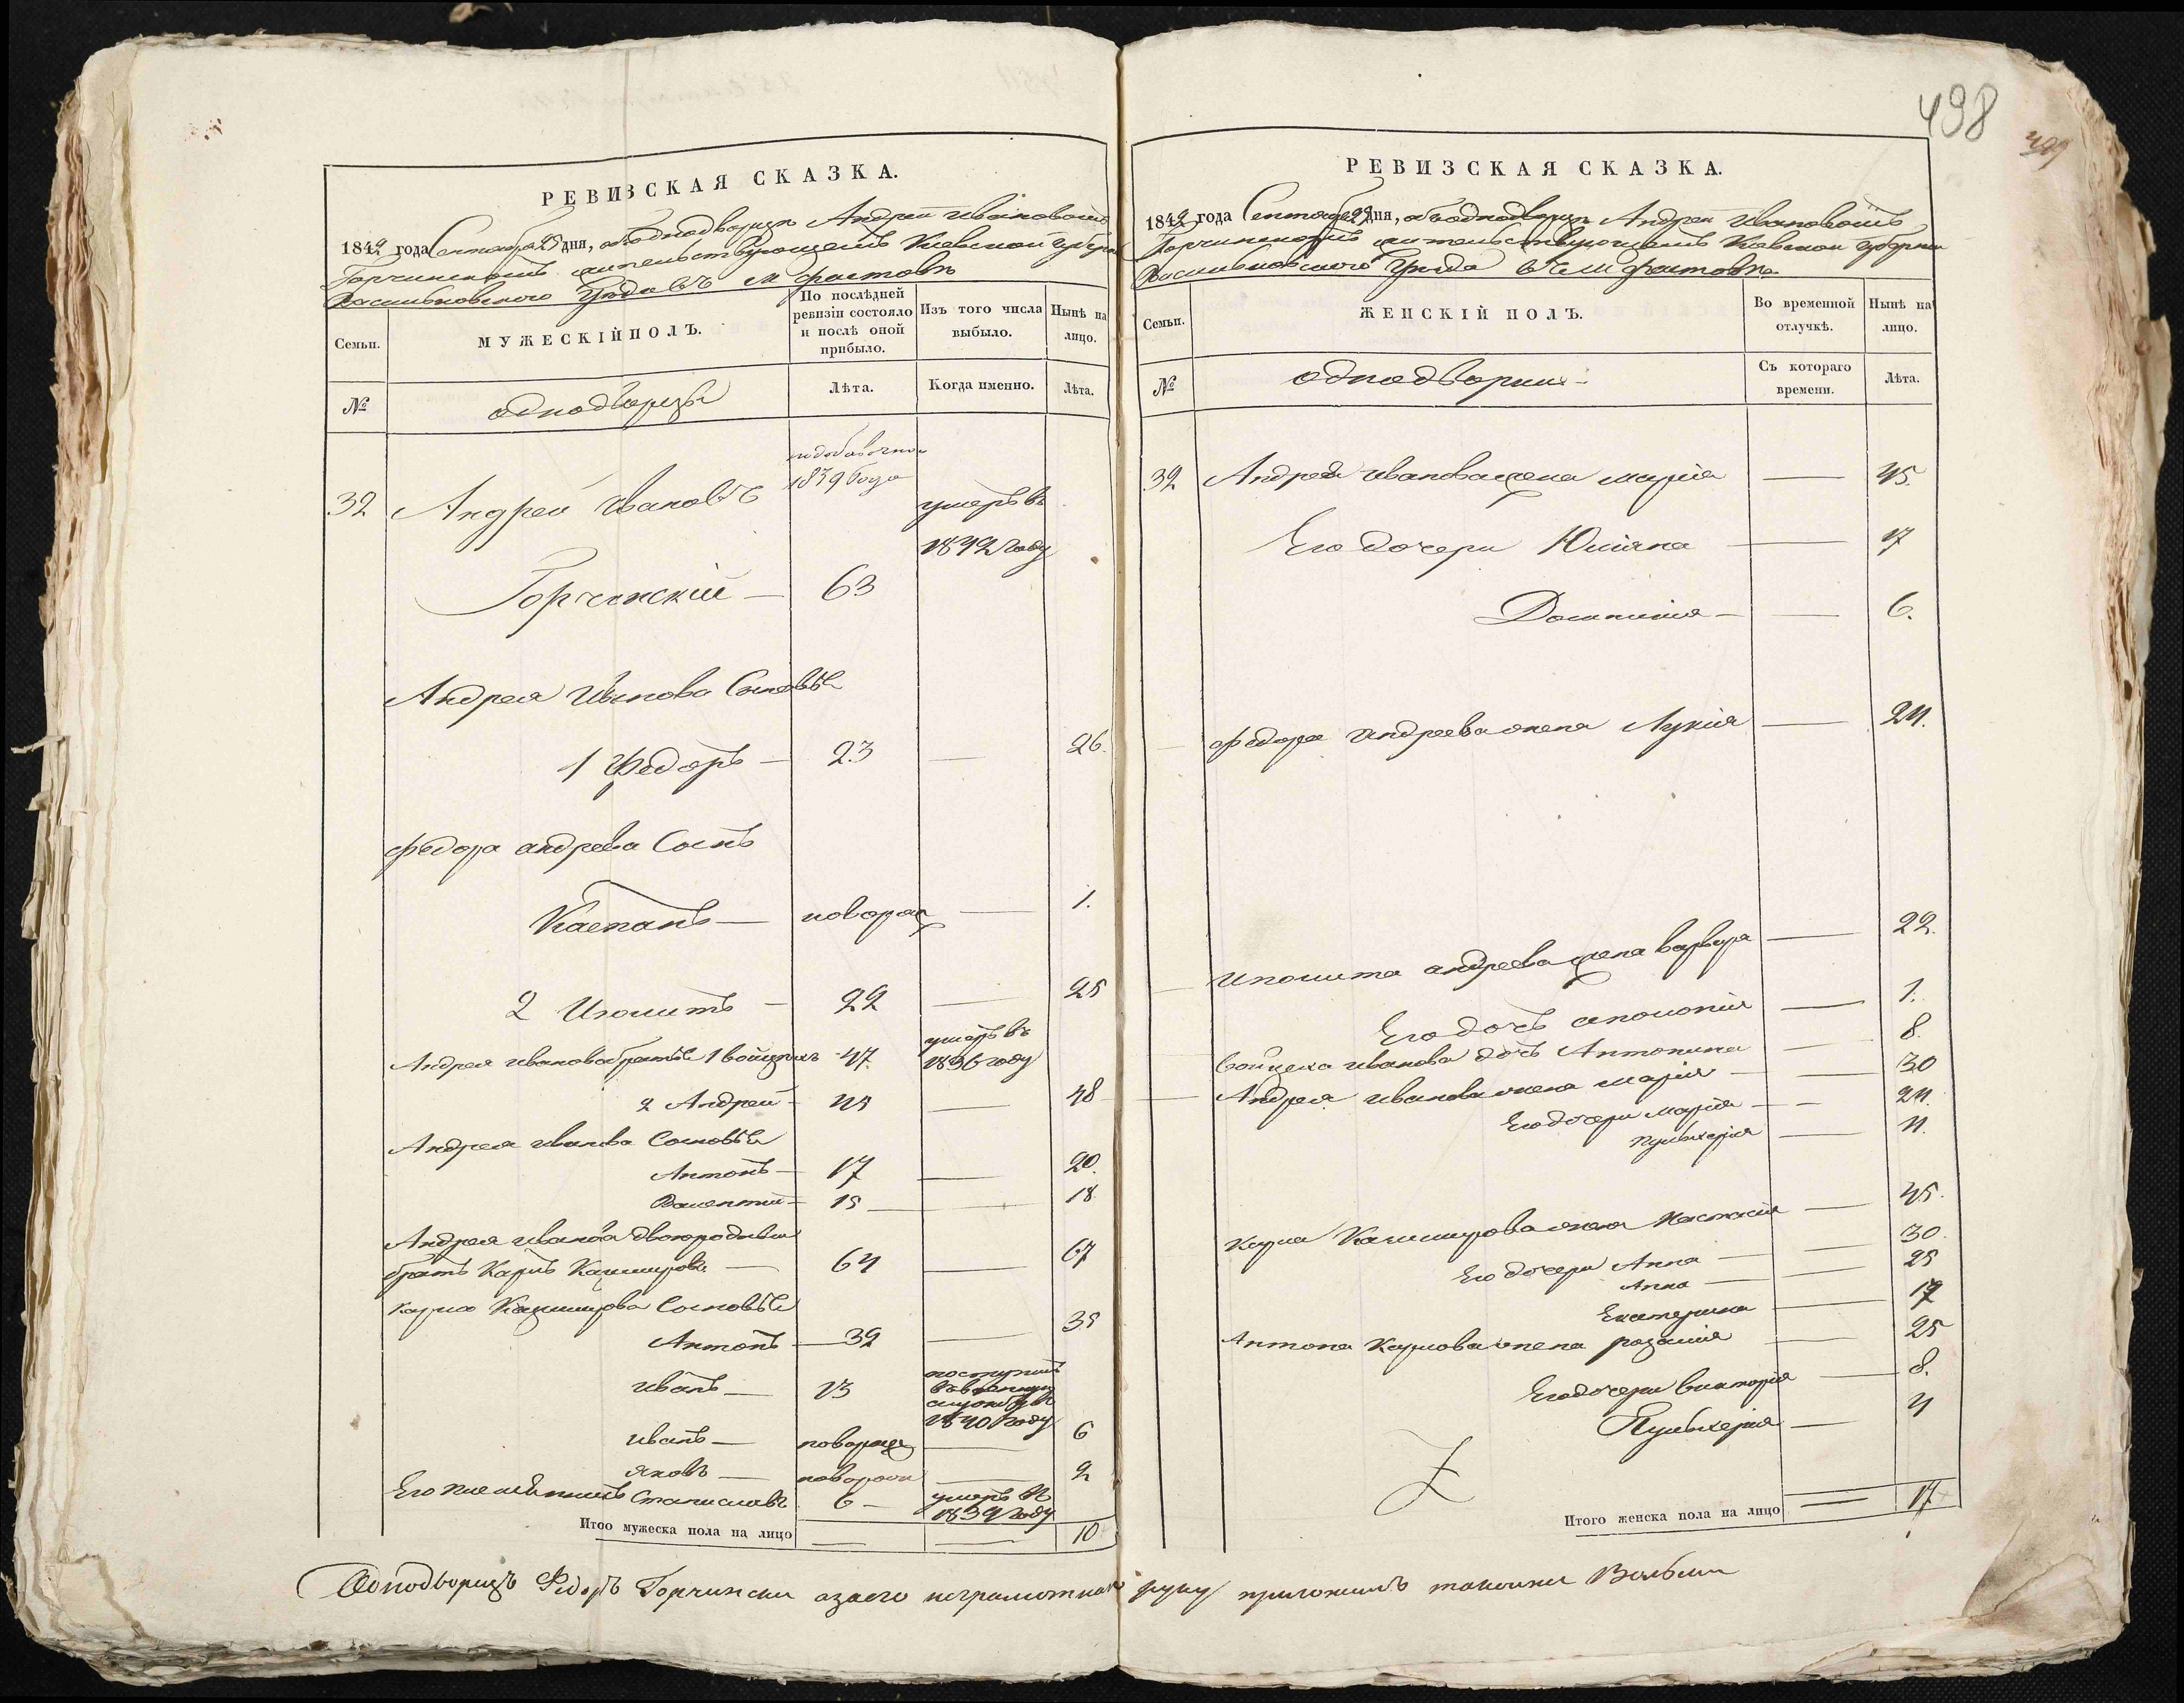 498
РЕВИЗСКАЯ СКАЗКА.
1842 года Сентября 25 дня, объ однодворцѣ Андреи Ивановомъ
Горчинскомъ жительствующемъ Киевской губерніи
Васильковского уѣзда въ м Фастовѣ
Семьи.
МУЖЕСКІЙ ПОЛЪ.
По послѣдней ревизіи состояло и послѣ оной прибыло.
Изъ того числа выбыло.
Нынѣ на лицо.
№
однодворцы
Лѣта.
Когда именно.
Лѣта.
1839 года
32 Андрей Ивановъ умеръ въ
1842 году
Горчинскій — 63
Андрея Иванова Сыновья
1 Федоръ — 23 — 26.
Федора андреева Сынъ
Каетанъ — новорож — 1.
2 Иполитъ — 22 — 25
Андрея Иванова братья 1 Войцехъ - 47. умеръ въ 1836 году
2 Андрей - 45 — 48
Андрея иванова Сыновья
Антонъ — 17 — 20.
Валентий — 15 — 18
Андрея иванова двоюродный
братъ Карлъ Казимировъ — 64 — 67
Карла Казимирова Сыновья
Антонъ — 32 — 35
Иванъ — 13 поступилъ въ военную службу въ 1840 году
Иванъ — новорож — 6
Яковъ — новорож — 2
Его племянникъ Станиславъ 6 — умеръ въ 1839 году
Итого мужеска пола на лицо — — 10
РЕВИЗСКАЯ СКАЗКА.
1842 года Сентября 25 дня, объ однодворцѣ Андреи Ивановомъ
Горчинскомъ жительствующемъ Киевской губерніи
Васильковского уѣзда въ м Фастовѣ
Семьи.
ЖЕНСКІЙ ПОЛЪ.
Во временной отлучкѣ.
Нынѣ на лицо.
№
однодворки
Съ котораго времени.
Лѣта.
32 Андрея Иванова жена Марія — 45.
Его дочери Юліяна — 17
Доминика — 6.
Федора Андреева жена Лукія — 24.
Иполита андреева жена варвара — 22.
Его дочь аполонія — 1.
Войцеха иванова дочь Антонина — 8.
Андрея иванова жена Марія — 30
Его дочери Марія — 24.
Пульхерія — 11.
Карла Казимирова жена Настасія — 45.
Его дочери Анна — 30.
Анна — 25
Екатерина — 17
Антона Карлова жена розалія — 25
Его дочери Викторія — 8.
Пульхерія — 4
Итого женска пола на лицо — 17
Однодворецъ Федоръ Горчински а за его неграмотнаго руку приложилъ